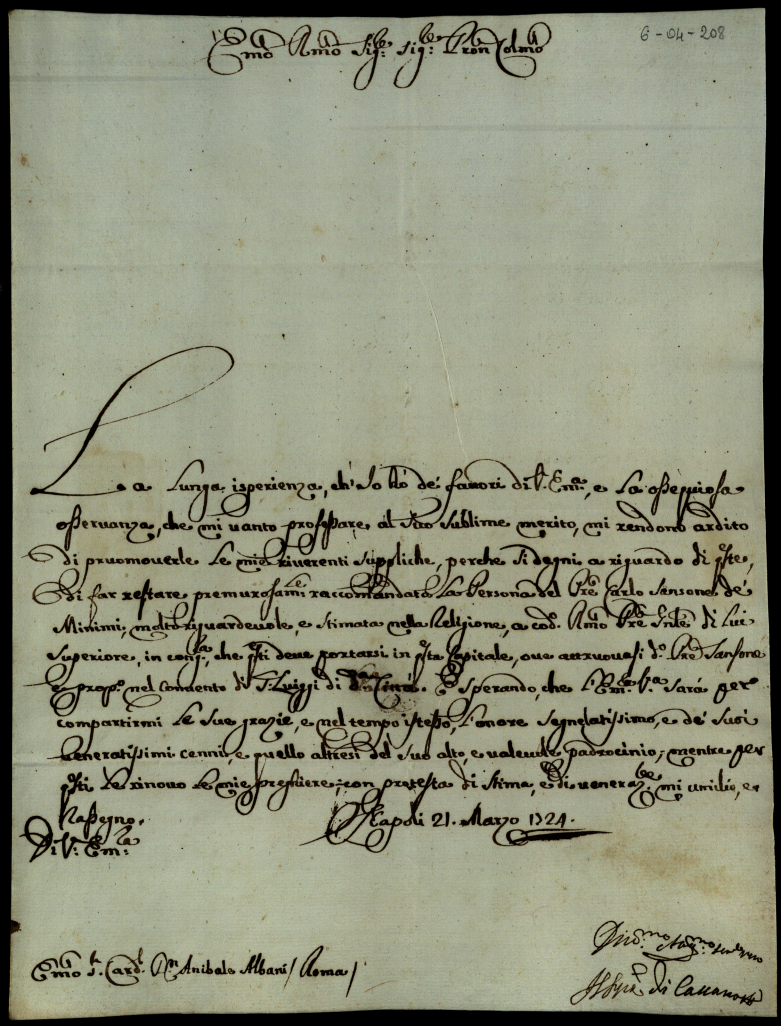 Emo Rmo Sigre sigre Pron Colmo
6-04-208
La Lunga isperienza, ch'Io hò de' fauori di V. Emza, e La osseqquiosa
osseruanza, che mi uanto professare al suo sublime merito, mi rendono ardito
di pruomouerle Le mie riuerenti suppliche, perche si degni a riguardo di qste,
di far restare premurosamte raccomandata La Persona del Pre Carlo Sansone de'
Minimi, molto riguardeuole, e stimata nella Religione, a cod. Rmo Pre Gnle di Lui
superiore, in congra, che qsti deue portarsi in qsta Capitale, oue attruouasi do. Pre Sansone
e propo. nel conuento di S. Luiggi di Città. E sperando, che l'Emza Va sarà per
compartirmi Le sue grazie, e nel tempo istesso, L'onore segnalatissimo, e de' suoi
Veneratissimi cenni, e quello altresì del suo alto, e valeuole padrocinio; mentre per
qsti Le rinouo Le mie preghiere; con protesta di stima, e di ueneraze mi umilio, e
Rassegno.
Napoli 21. Marzo 1724.
Di V. Emza
Emo Sr. Cardl Dn Anibale Albani / Roma /
Diuomo
di Cassano